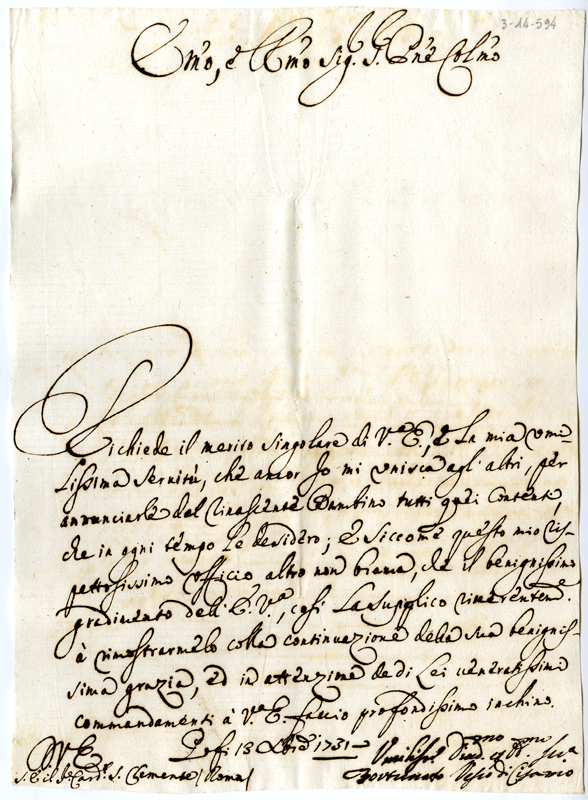 3-14-594
Emo, e Rmo Sig. S. Pne Colmo
Richiede il merito singolare di V.a E., e la mia umi-
lissima servitù, che ancor Io mi unisca agl'altri, per
annunciarle dal rinascente Bambino tutti quei contenti,
che in ogni tempo le desidero; e siccome questo mio ris-
pettosissimo officio altro non brama, che il benignissimo
gradimento dell'E. V.a, così la supplico riverentem.e
à rimostrarmelo colla continuazione della sua benignis-
sima grazia, ed in attenzione de di Lei veneratissimi
commandamenti à V.a E. faccio profondissimo inchino.
Di V. E.
18 Xbre 1731
S. E. il Sr Card. S. Clemente / Roma /
Umiliss.o Div.mo
Fortunato Vescovo di